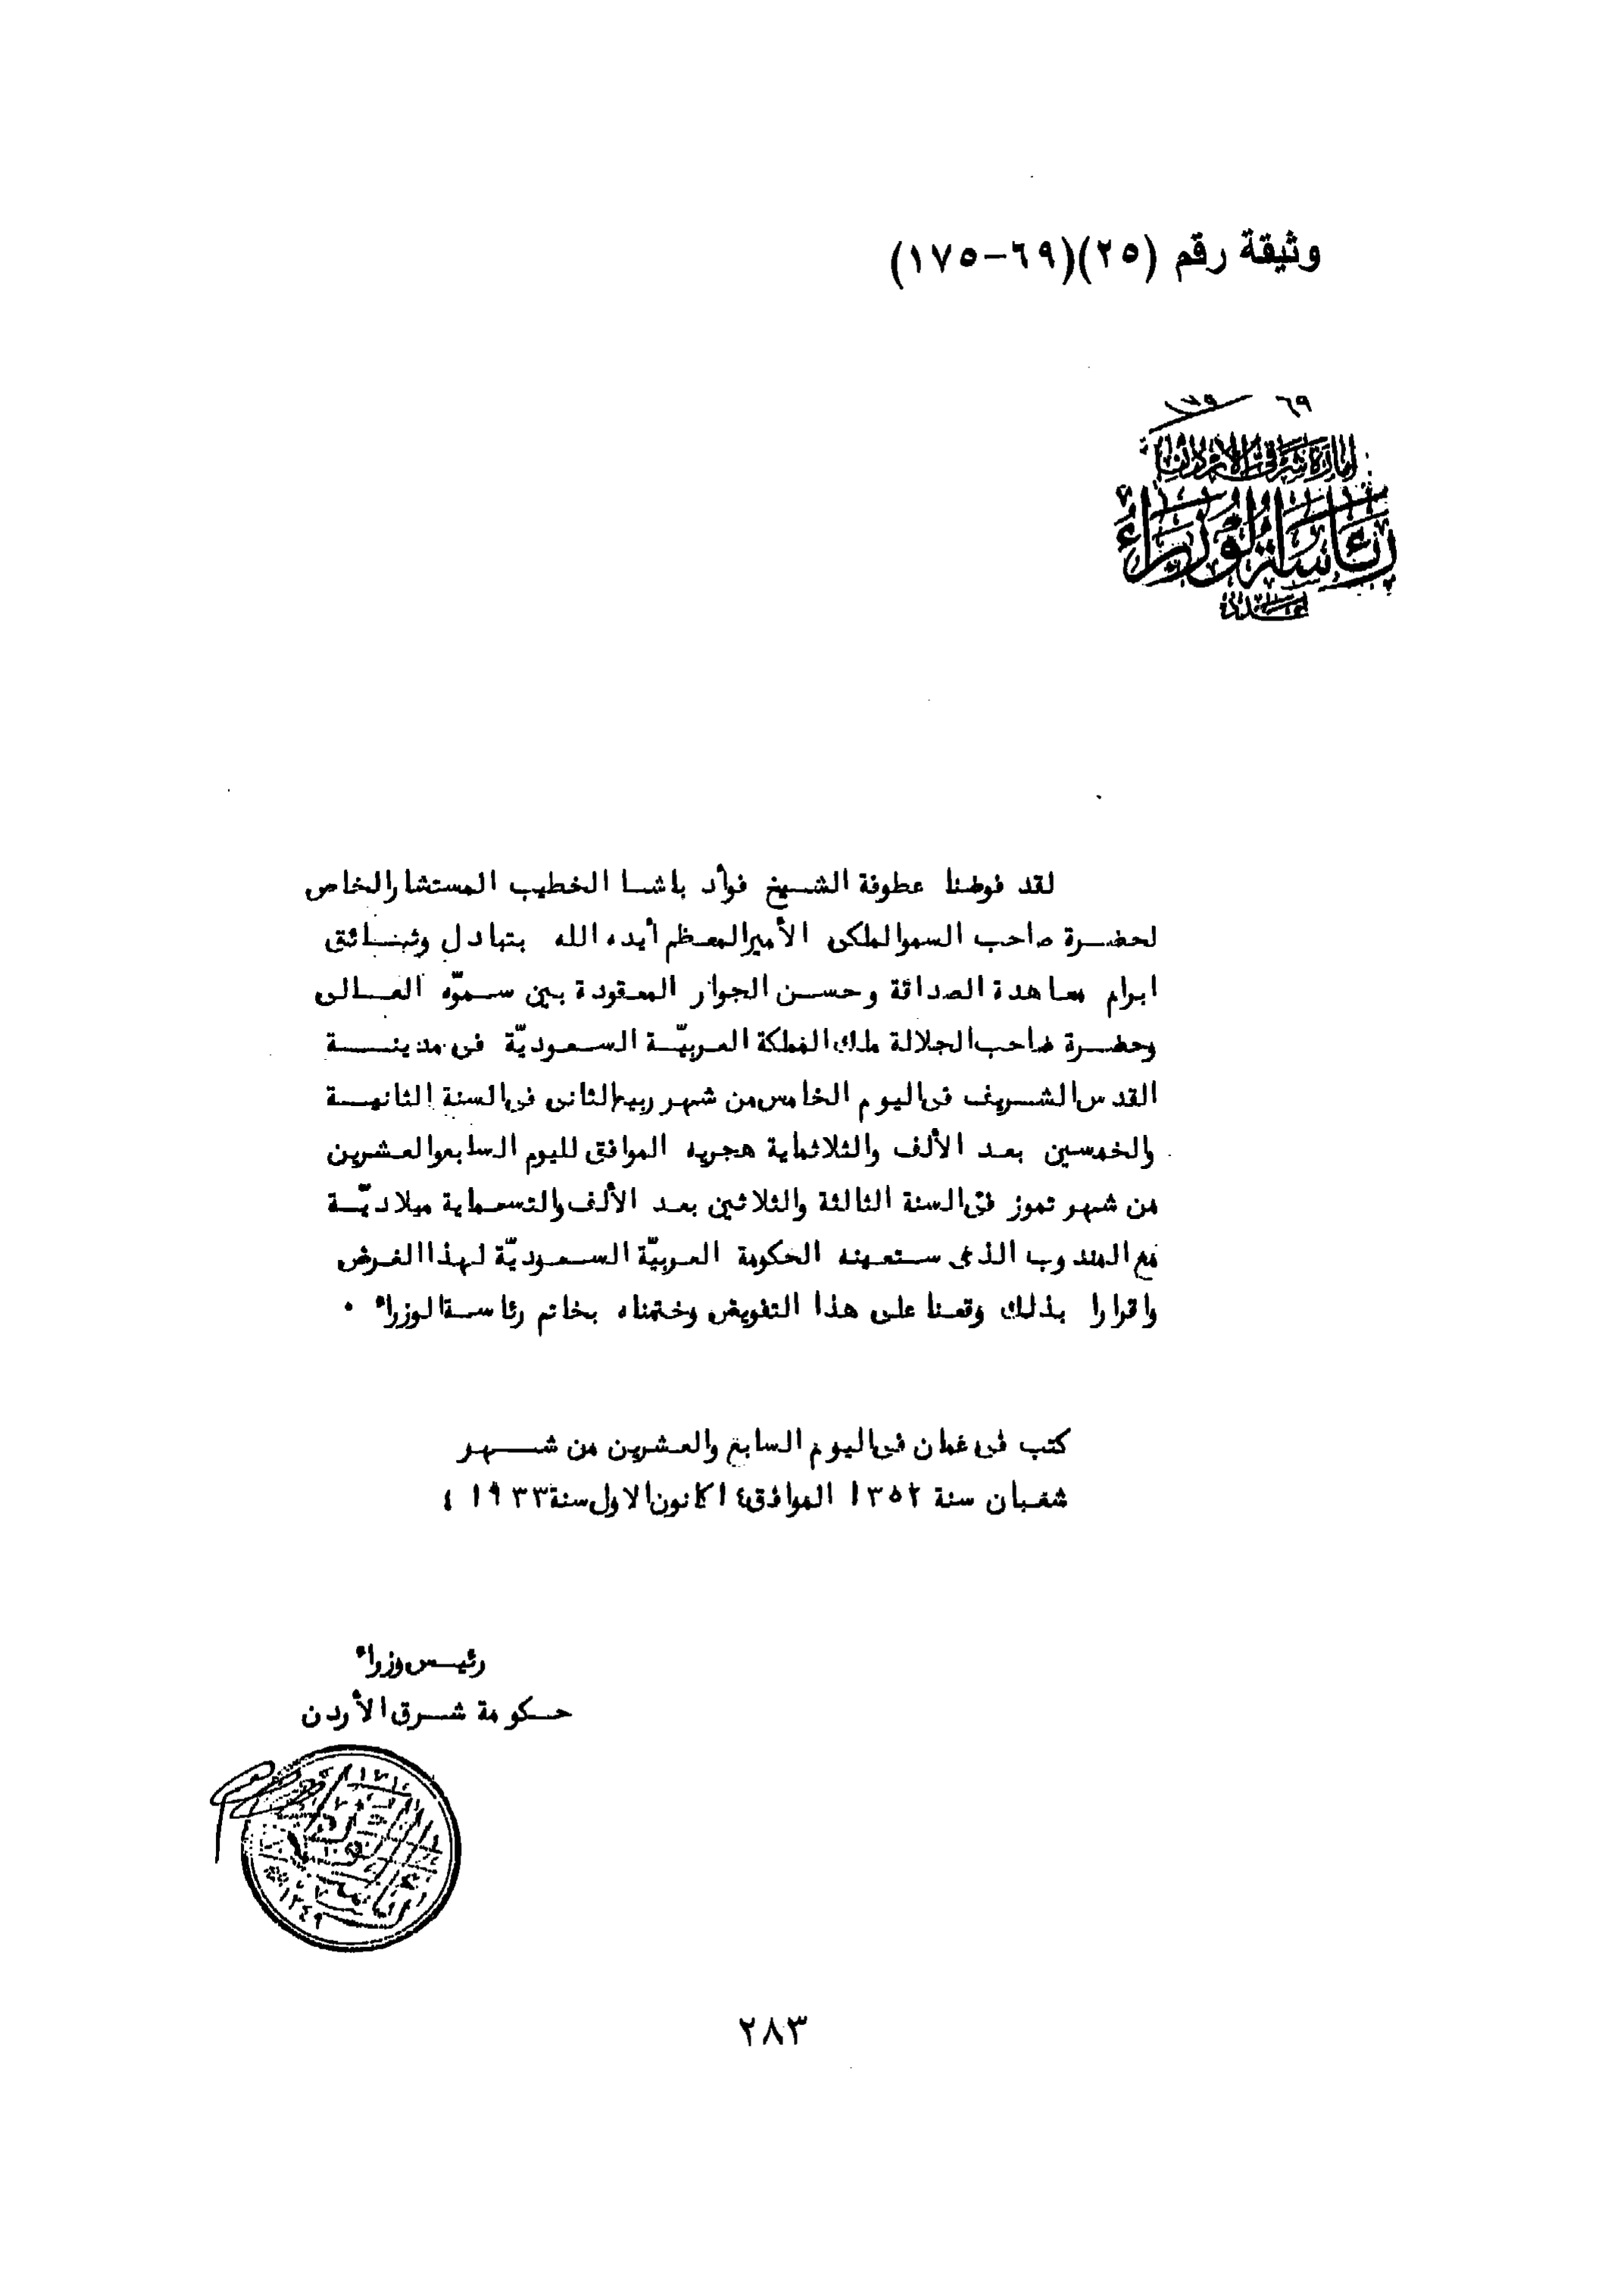 وثيقة رقم (٢٥)(٦٩-١٧٥)
٦٩
إمارة شرق الأردن
رئاسة الوزراء
عدد
لقد فوضنا عطوفة الشيخ فوأد باشا الخطيب المستشار الخاص
لحضرة صاحب السمو الملكى الأمير المعظم أيده الله بتبادل وثائق
ابرام معاهدة الصداقة وحسن الجوار المعقودة بين سموّه العالى
وحضرة صاحب الجلالة ملك المملكة العربيّة السعوديّة فى مدينة
القدس الشريف فى اليوم الخامس من شهر ربيع الثانى فى السنة الثانية
والخمسين بعد الألف والثلاثماية هجريه الموافق لليوم السابع والعشرين
من شهر تموز فى السنة الثالثة والثلاثين بعد الألف والتسعماية ميلاديّة
مع المندوب الذى ستعينه الحكومة العربيّة السعوديّة لهذا الغرض
واقرارا بذلك وقعنا على هذا التفويض وختمناه بخاتم رئاسة الوزراء ٠
كتب فى عمان فى اليوم السابع والعشرين من شهر
شعبان سنة ١٣٥٢ الموافق ١٤ كانون الاول سنة ١٩٣٣ ؛
رئيس وزراء
حكومة شرق الأردن
١٣٤٩
٢٨٣